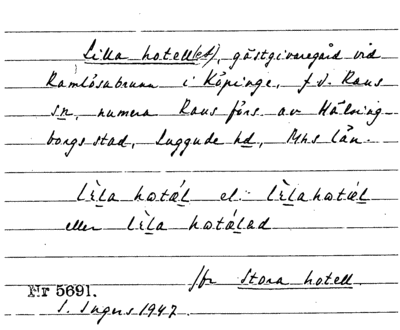 Lilla hotell(et), gästgivaregård vid
Ramlösabrunn i Köpinge, f.d. Raus
sn, numera Raus förs. av Hälsing-
borgs stad, Luggude hd, Mhs län.
lèla hotäl el. lèla hotäl
eller lèla hotälad
jfr Stora hotell.
Nr 5691.
S. Ingers 1947.